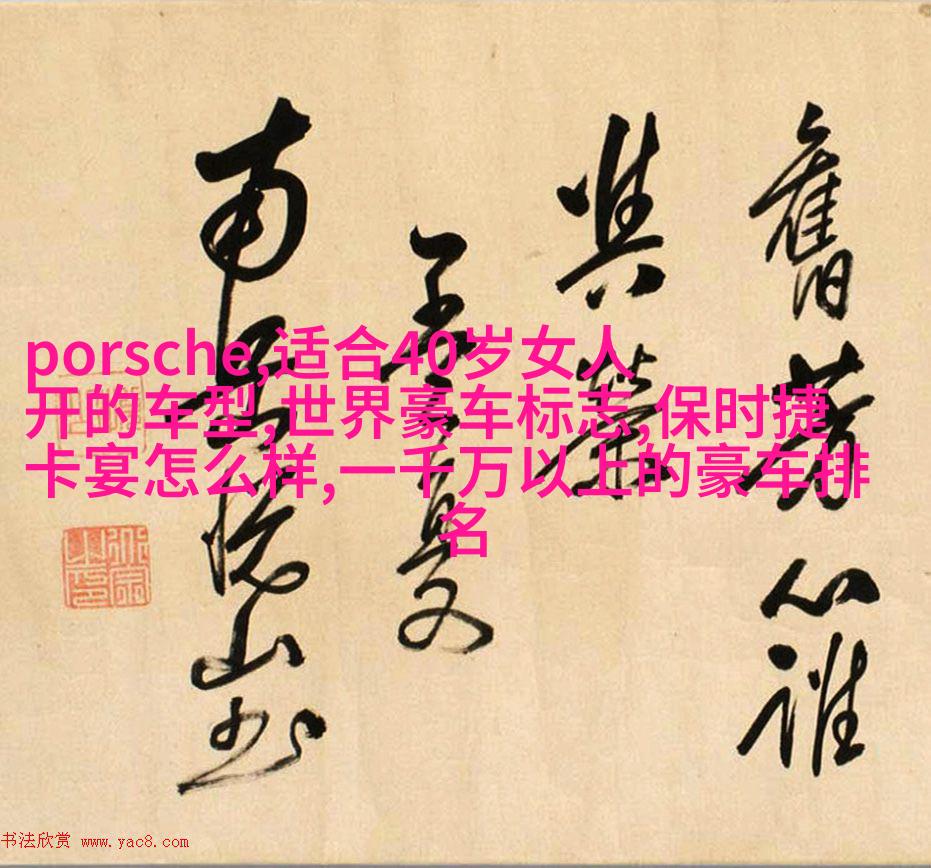 porsche,适合40岁女人
开的车型,世界豪车标志,保时捷
卡宴怎么样,一千万以上的豪车排
名
舊 心誰
與
夏
南岳悅山书
书法欣赏 www.yac8.com